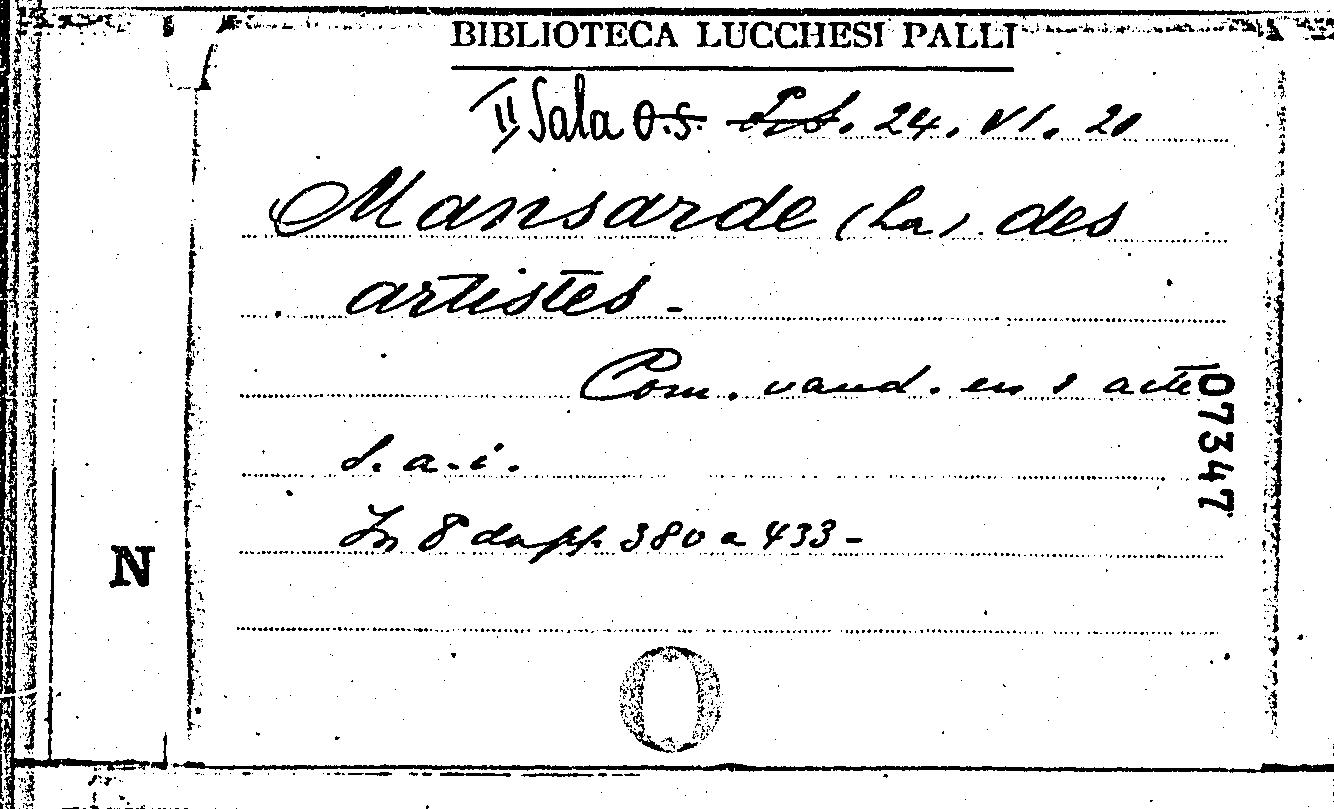 BIBLIOTECA LUCCHESI PALLI
II Sala O.S. 24. VI. 20
Mansarde (La) des
artistes -
Com. vaud. en 1 acte
S. a. i.
In 8 da pp. 380 a 433 -
07347
N